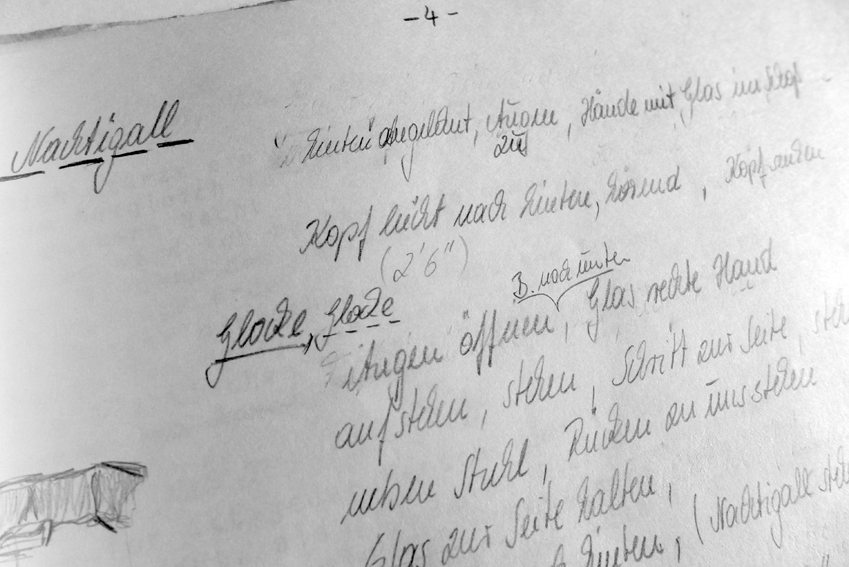 - 4 -
Nachtigall
hinten angelehnt, Augen zu, Hände mit Glas im Schoß
Kopf leicht nach hinten, hörend, Kopf
(2'6")
B. nach unten
Glocke, Glocke
Augen öffnen, Glas rechte Hand
aufstehen, stehen, Schritt zur Seite,
neben Stuhl, Rücken zu uns stehen
Glas zur Seite halten,
hinten, (Nachtigall